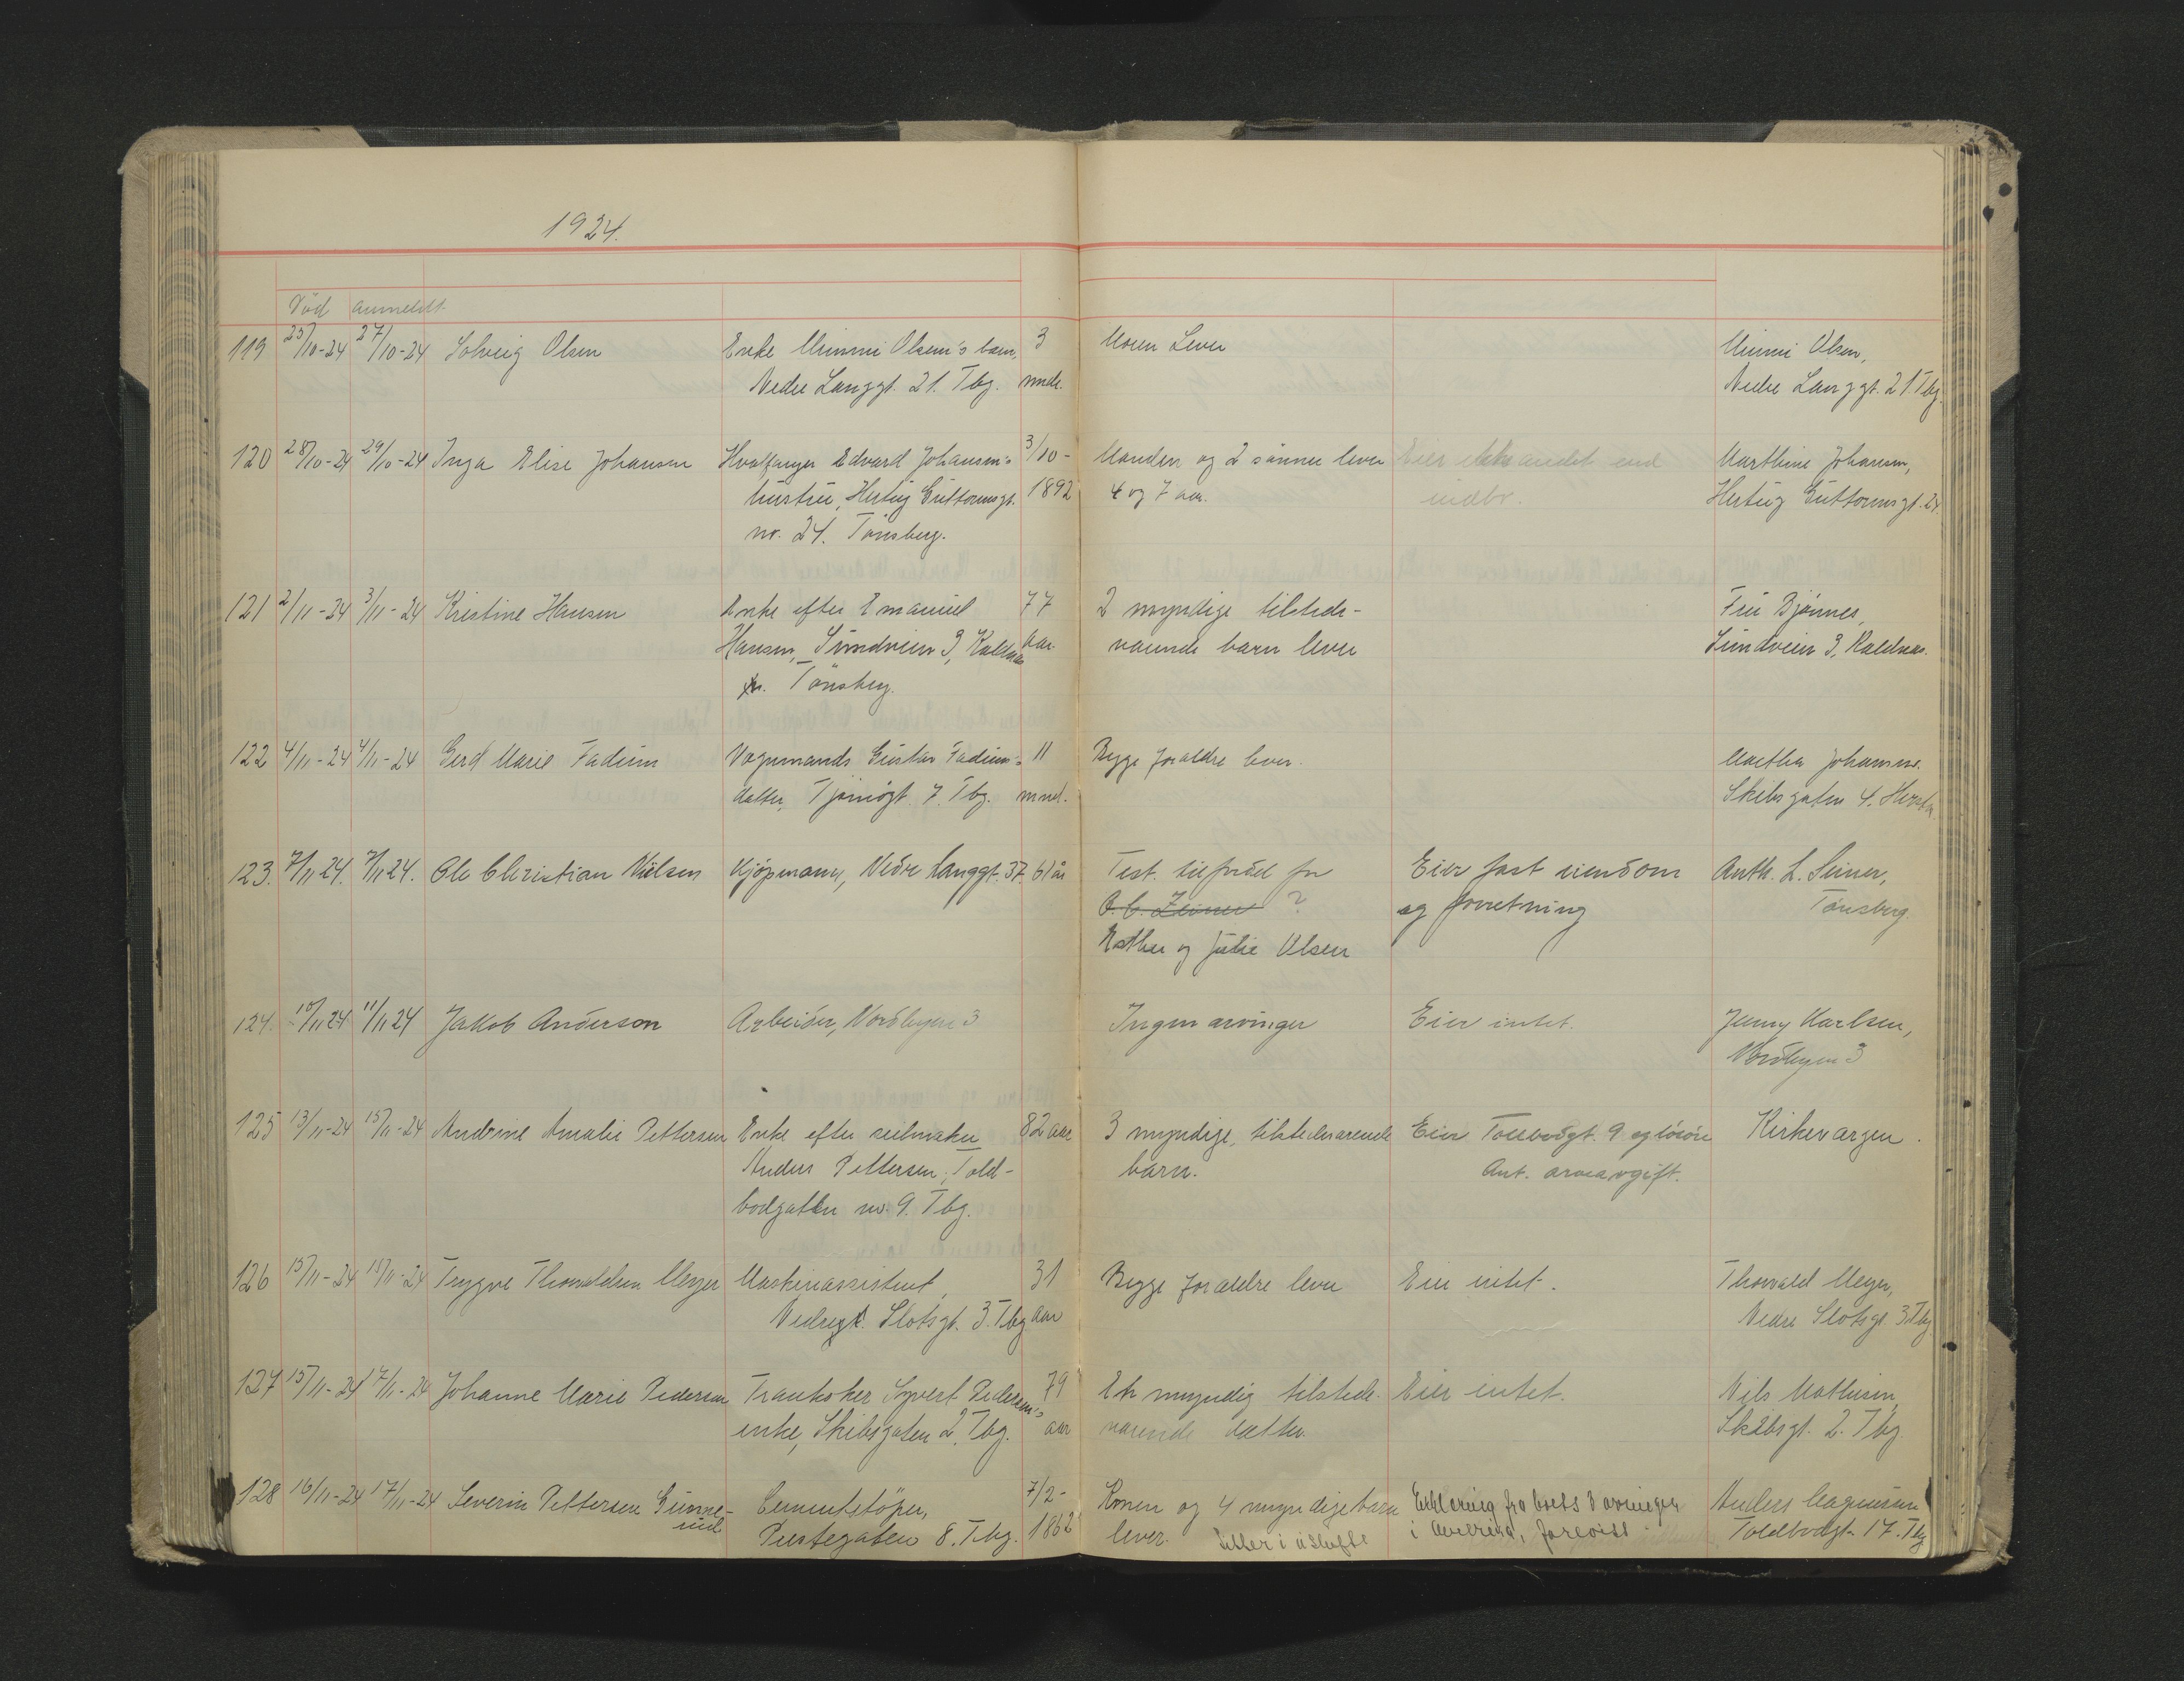 1924.
Död anmeldt.
119 25/10-24 27/10-24 Solveig Olsen Enke Minni Olsen's barn, 3 Moren Lever Minni Olsen,
Nedre Langgt. 21. Tbg. mndr. Nedre Langgt. 21. Tbg.
120 28/10-24 29/10-24 Inga Elise Johansen Hvalfanger Edvard Johansen's 3/10- Manden og 2 sönner lever Eier ikke andet end Marthine Johansen,
hustru, Hertug Guttormsgt. 1892 4 og 7 aar. indbo. Hertug Guttormsgt. 24
no. 24. Tönsberg.
121 2/11-24 3/11-24 Kristine Hansen Enke efter Emanuel 77 2 myndige tilstede- Fru Bjönnes,
Hansen, Sundveien 3, Kaldnæs aar værende barn lever Sundveien 3, Kaldnæs.
Tönsberg.
122 4/11-24 4/11-24 Gerd Marie Fadum Vognmands Gustav Fadum's 11 Begge forældre lever. Martha Johannes.
datter, Tjömögt. 7. Tbg. mnd. Skibsgaten 4.
123. 7/11 24. 7/11 24. Ole Christian Nielsen Kjöpmann, Nedre Langgt. 37. 61 år Test. til fordel for Eier fast eiendom Anth. L.
O. C. ? og forretning Tönsberg.
Esther og Julie Olsen
124. 10/11 24 11/11 24 Jakob Anderson Arbeider, Nordbyen 3 Ingen arvinger Eier intet. Jenny Karlsen,
Nordbyen 3
125 13/11-24 15/11-24 Andrine Amalie Pettersen Enke efter seilmaker 82 aar 3 myndige, tilstedeværende Eier Toldbodgt. 9 og lösöre Kirkevergen.
Anders Pettersen, Told- barn. Ant. arveavgift.
bodgatten no. 9. Tbg.
126 15/11-24 15/11-24 Trygve Thorvaldsen Meyer Maskinassistent, 31 Begge forældre lever Eier intet. Thorvald Meyer,
Nedre Slotsgt. 3. Tbg aar Nedre Slotsgt 3 Tbg
127 15/11-24 17/11-24 Johanne Marie Pedersen Trankoker Syvert Pedersen's 79 Et myndig tilstede- Eier intet. Nils Mathisen,
enke, Skibsgaten 2. Tbg. aar værende datter. Skibsgt. 2. Tbg.
128 16/11-24 17/11-24 Severin Pettersen Gunne- Cementstöper, 7/2- Konen og 4 myndige barn Erklæring fra barts 3 arvinger Anders Magnussen
rud Prestegaten 8. Tbg. 1862 lever. Sitter i uskifte i Amerika, forevist Toldbodgt. 17. Tbg